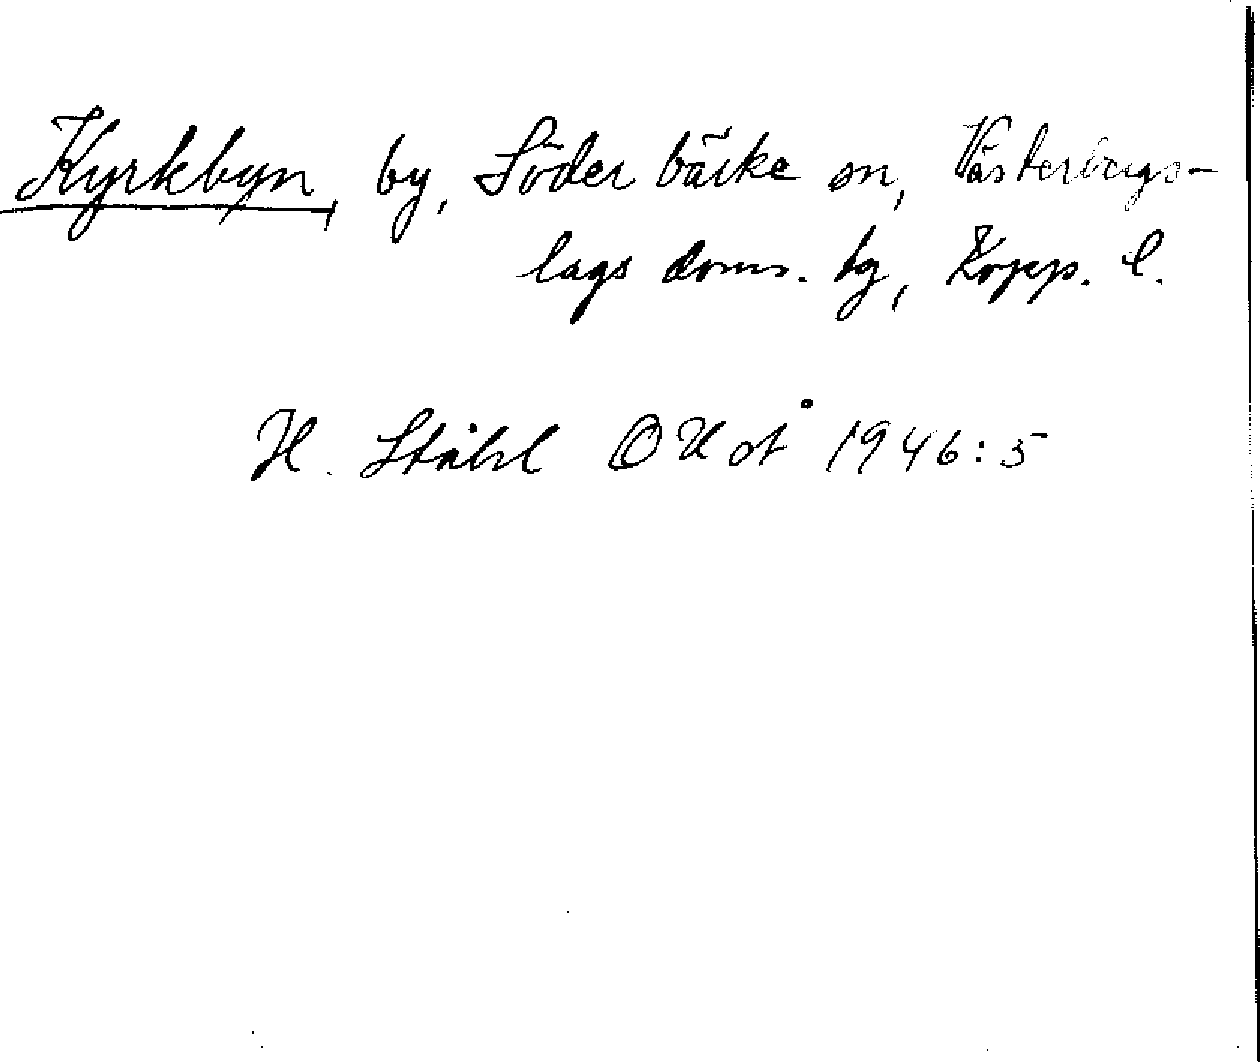 Kyrkbyn, by, Söderbärke sn, Västerbergs-
lags doms. tg, Kopp. l.
H. Ståhl OUÅ 1946:5